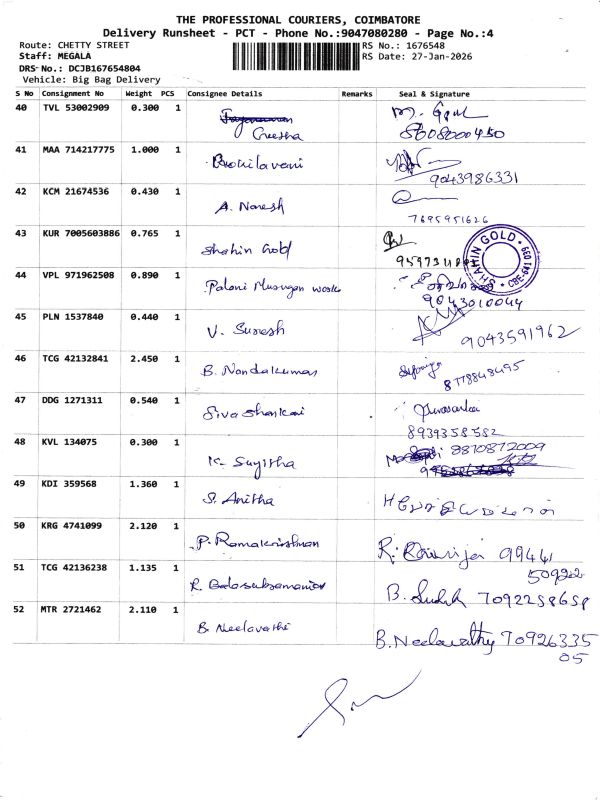 THE PROFESSIONAL COURIERS, COIMBATORE
Delivery Runsheet - PCT - Phone No.:9047080280 - Page No.:4
Route: CHETTY STREET
RS No.: 1676548
Staff: MEGALA
RS Date: 27-Jan-2026
DRS No.: DCJB167654804
Vehicle: Big Bag Delivery
S No Consignment No Weight PCS Consignee Details Remarks Seal & Signature
40 TVL 53002909 0.300 1
8608000450
41 MAA 714217775 1.000 1
9043986331
42 KCM 21674536 0.430 1 A. Naresh
7695951626
43 KUR 7005603886 0.765 1 Shahin Gold
SHAHIN GOLD CBE-641 039
44 VPL 971962508 0.890 1 Palani Murugan works
9043010044
45 PLN 1537840 0.440 1 V. Suresh 9043591962
46 TCG 42132841 2.450 1 B. Nandakumar
8778848495
47 DDG 1271311 0.540 1 Siva Shankari
8939358582
48 KVL 134075 0.300 1 K. Sugitha 9870872009
49 KDI 359568 1.360 1 S. Anitha
50 KRG 4741099 2.120 1 P. Ramakrishnan
R. 99441
50922
51 TCG 42136238 1.135 1 R. Balasubramaniam
B. 7092258658
52 MTR 2721462 2.110 1 B. Neelavathi
B. Neelavathy 70926335
05